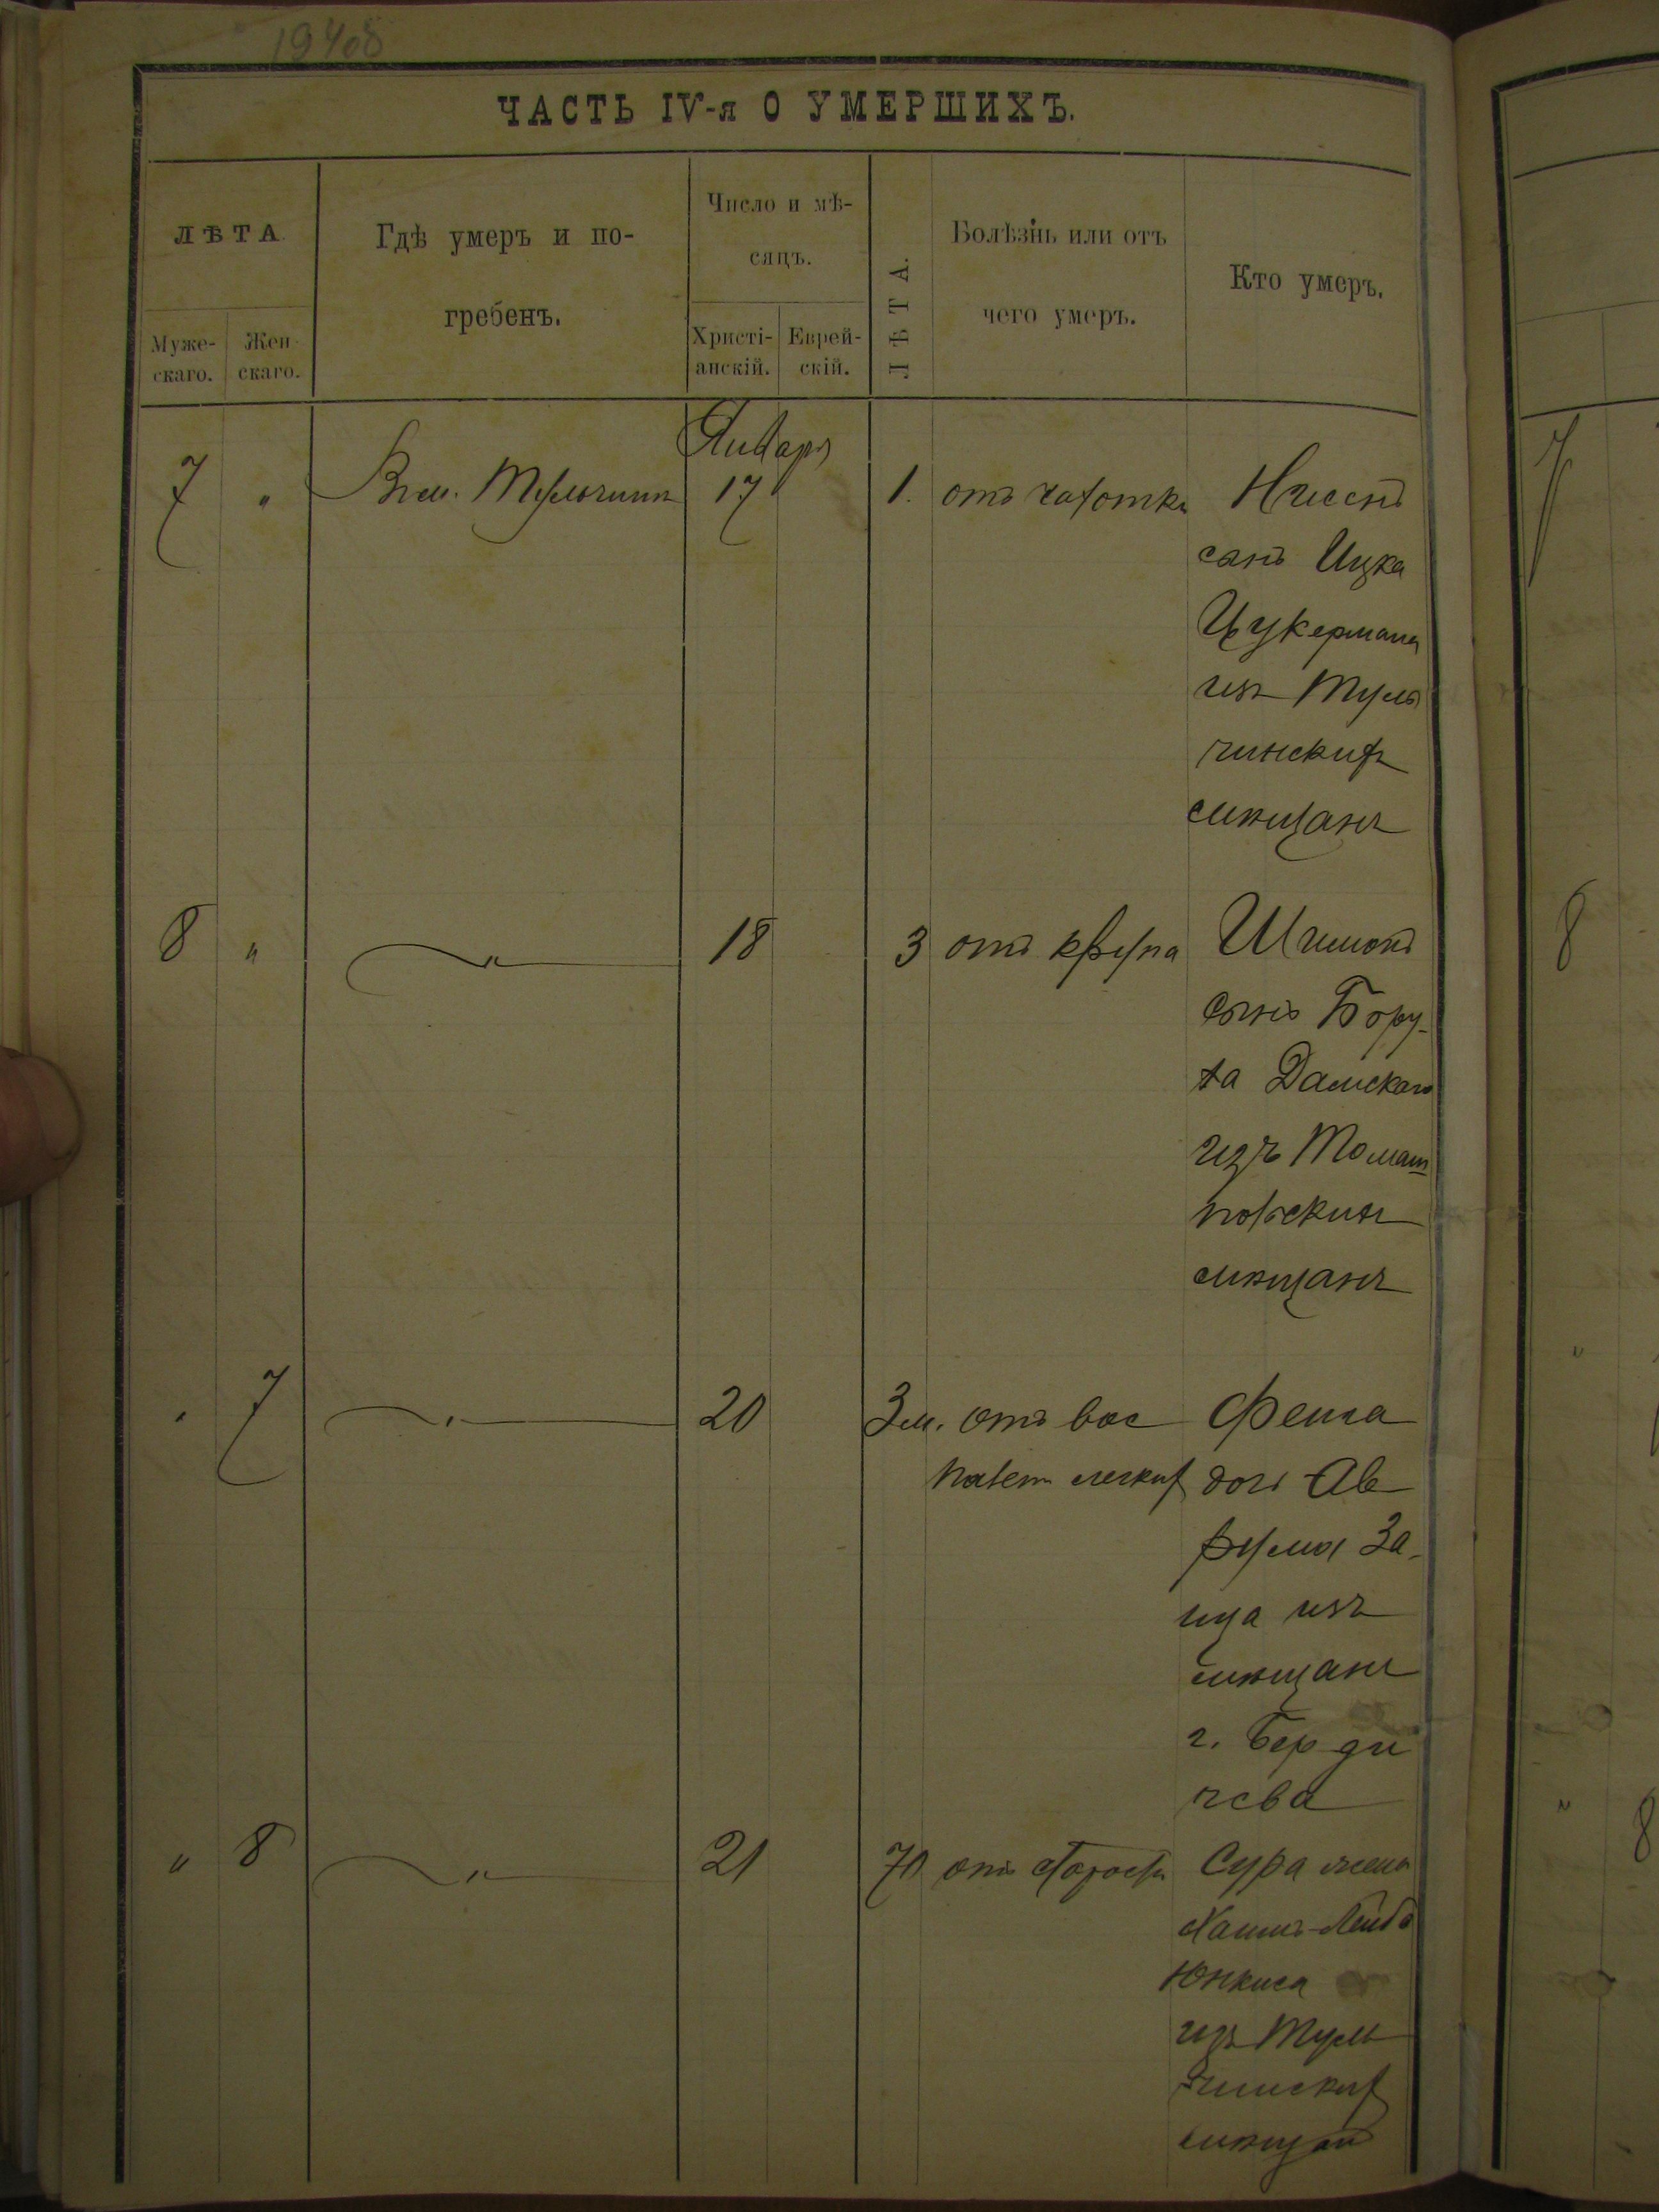 19408
ЧАСТЬ IV-я О УМЕРШИХЪ.
ЛѢТА
Муже-
скаго.
Жен-
скаго.
Гдѣ умеръ и по-
гребенъ.
Число и мѣ-
сяцъ.
Христі-
анскій.
Еврей-
скій.
ЛѢТА.
Болѣзнь или отъ
чего умеръ.
Кто умеръ.
Января
7 " Въ м. Тульчинѣ 17 1. отъ чахотки Ниссенъ
сынъ Ицка
Цукермана
изъ Туль
чинскихъ
мѣщанъ
8 " —"— 18 3 отъ крупа Шимонъ
сынъ Бору-
ха Дамскаго
изъ Томаш
польскихъ
мѣщанъ
" 7 —"— 20 3 м. отъ вос Фейга
палень легких дочь Ав
рума За-
йца изъ
мѣщанъ
г. Берди
чева
" 8 —"— 21 70 отъ старости Сура жена
Хаимъ-Лейбъ
Юнкиса
изъ Туль
чинских
мѣщанъ
7
8
"
" 8